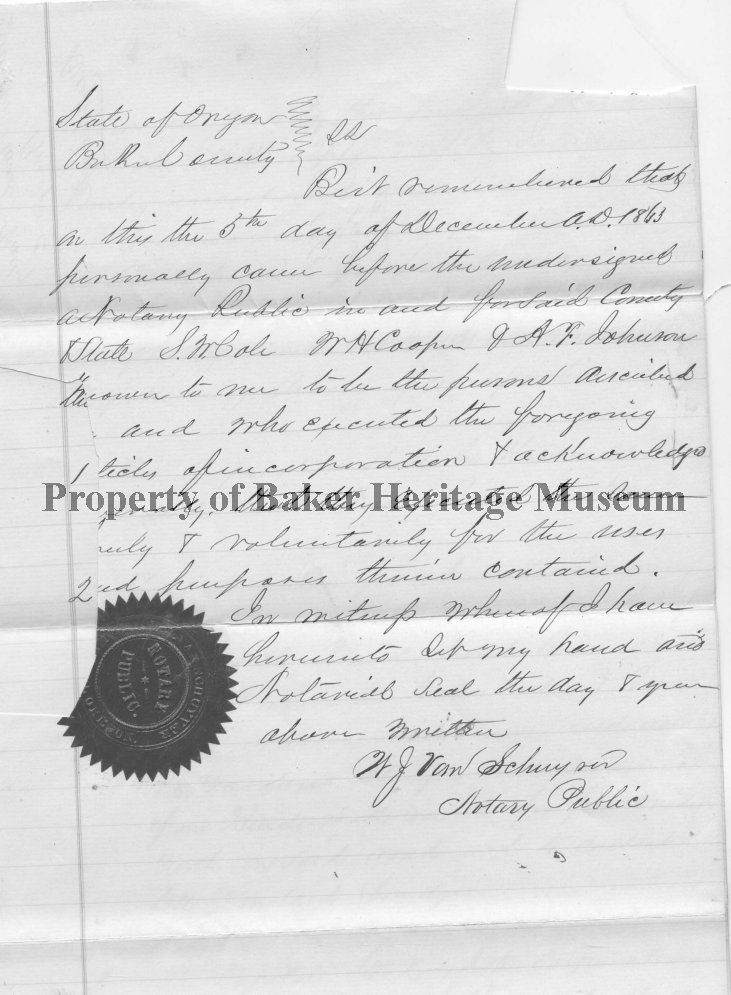 State of Oregon
Baker County } SS
Be it remembered that
on this the 5th day of December A.D. 1863
personally came before the undersigned
a Notary Public in and for said County
& State S. W. Cole W H Cooper & A. F. Johnson
known to me to be the persons described
and who executed the foregoing
ticles of incorporation & acknowledged
Property of Baker Heritage Museum
that they executed the same
eely & voluntarily for the uses
and purposes therein contained.
In witness whereof I have
hereunto set my hand and
Notarial Seal the day & year
above written
W J Van Schuyver
Notary Public
NOTARY
PUBLIC.